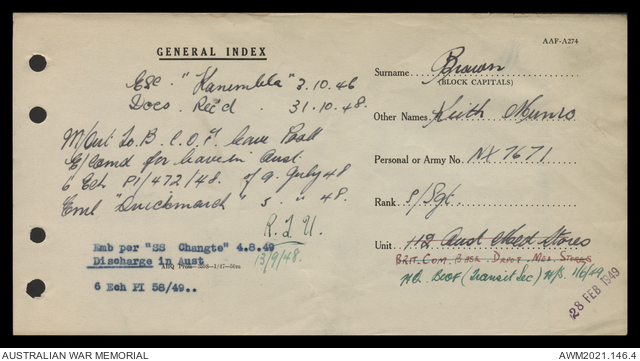 AAF-A274
GENERAL INDEX
Esc. "Kanimbla" 3.10.46
Docs. Rec'd. 31.10.48.
M/Out to B.C.O.F. leave Pool
E/Comd for leave in Aust
6 Ech PI/472/48. of 9. July 48
Emb "Duntroon" 5. " 48.
R.T.U.
13/9/48.
Emb per "SS Changte" 4.8.49
Discharge in Aust
6 Ech PI 58/49..
Surname Brown
(BLOCK CAPITALS)
Other Names Keith Munro
Personal or Army No. NX7671
Rank S/Sgt.
Unit 112 Aust Med Stores
BRIT. COM. BASE DEPOT MED. STORES
HQ. BCOF (Transit Sec) 1/6/49
28 FEB 1949
AUSTRALIAN WAR MEMORIAL
AWM2021.146.4